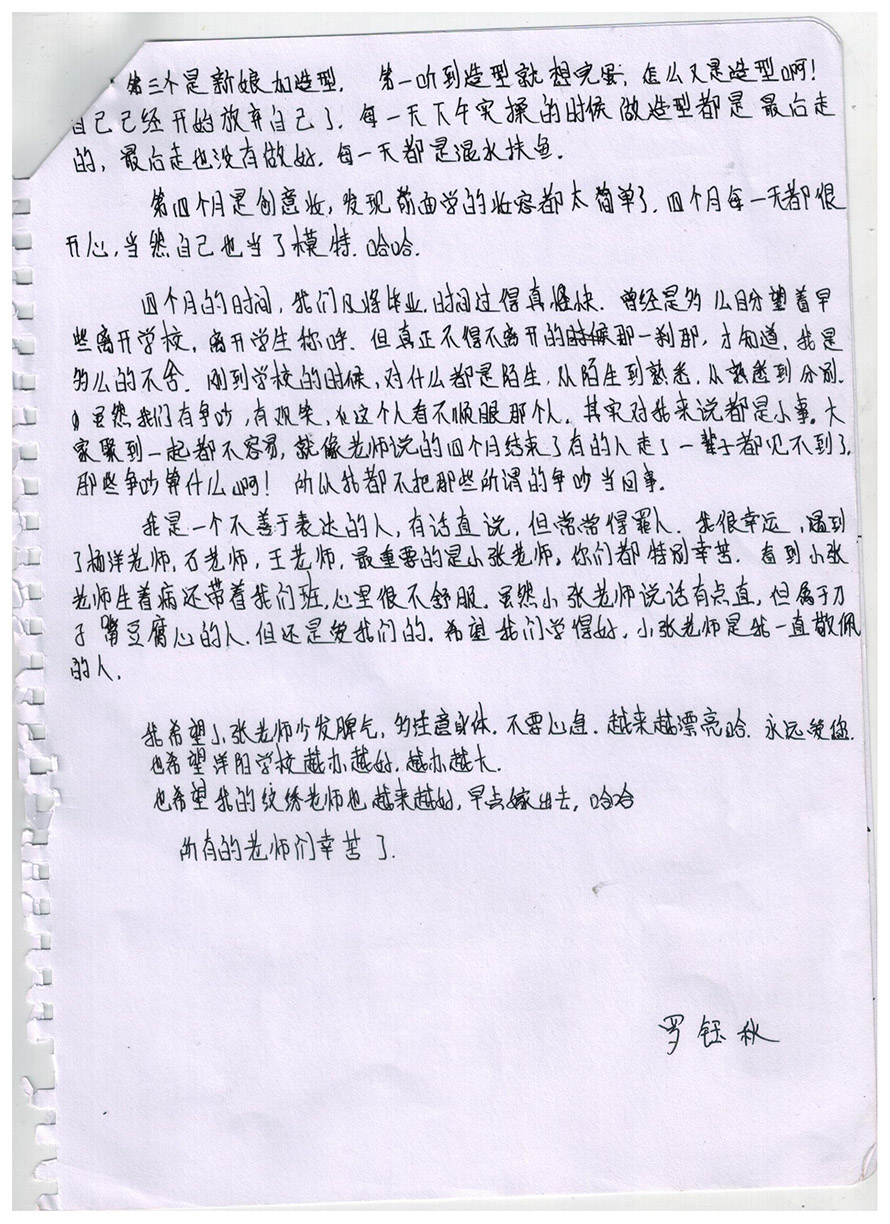 第三个是新娘加造型. 第一听到造型就想完蛋, 怎么又是造型啊!
自己已经开始放弃自己了. 每一天下午实操的时候做造型都是最后走
的, 最后走也没有做好. 每一天都是混水扶鱼.
第四个月是创意妆, 发现前面学的妆容都太简单了. 四个月每一天都很
开心, 当然自己也当了模特. 哈哈.
四个月的时间, 我们即将毕业. 时间过得真怪快. 曾经是多么自分望着早
些离开学校, 离开学生称呼. 但真正不得不离开的时候那一刹那, 才知道, 我是
多么的不舍. 刚到学校的时候, 对什么都是陌生, 从陌生到熟悉, 从熟悉到分别.
虽然我们有争吵, 有欢笑, 这个人看不顺眼那个人. 其实对我来说都是小事. 大
家聚到一起都不容易, 就像老师说的四个月结束了有的人走了一辈子都见不到了.
那些争吵算什么啊! 所以我都不把那些所谓的争吵当回事.
我是一个不善于表达的人, 有话直说, 但常常得罪人. 我很幸运, 遇到
了杨洋老师, 石老师, 王老师, 最重要的是小张老师. 你们都特别幸苦. 看到小张
老师生着病还带着我们班, 心里很不舒服. 虽然小张老师说话有点直, 但属于刀
子嘴豆腐心的人. 但还是爱我们的. 希望我们学得好. 小张老师是我一直敬佩
的人.
我希望小张老师少发脾气, 多注意身体. 不要心急. 越来越漂亮哈. 永远爱您.
也希望洋阳学校越办越好. 越办越大.
也希望我的纹绣老师也越来越好, 早点嫁出去, 哈哈
所有的老师们幸苦了.
罗钰秋